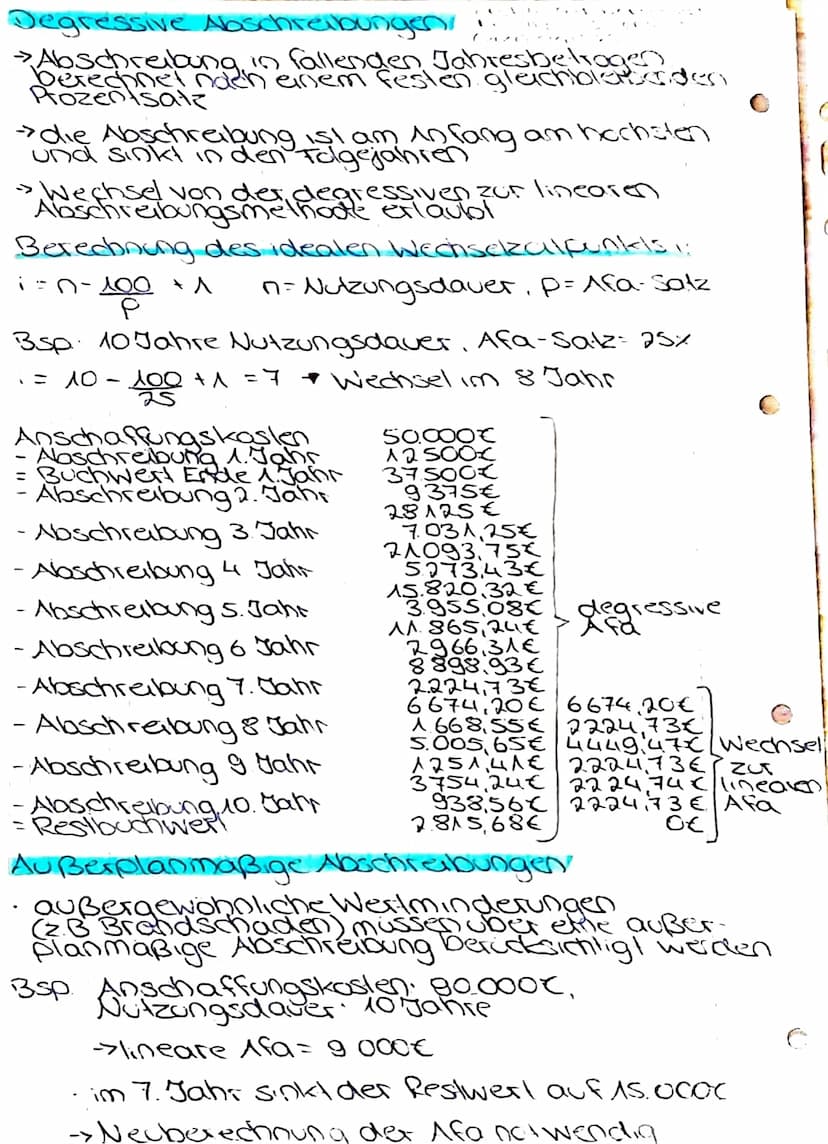 Degressive Abschreibungen
→ Abschreibung in fallenden Jahresbeträgen
berechnet nach einem festen gleichbleibenden
Prozentsatz
→ die Abschreibung ist am Anfang am höchsten
und sinkt in den Folgejahren
→ Wechsel von der degressiven zur linearen
Abschreibungsmethode erlaubt
Berechnung des idealen Wechselzeitpunkts:
i = n - 100/p + 1 n = Nutzungsdauer, p = Afa-Satz
Bsp. 10 Jahre Nutzungsdauer, Afa-Satz = 25%
i = 10 - 100/25 + 1 = 7 → Wechsel im 8 Jahr
Anschaffungskosten 50.000€
- Abschreibung 1. Jahr 12500€
= Buchwert Ende 1. Jahr 37.500€
- Abschreibung 2. Jahr 9375€
28125€
- Abschreibung 3. Jahr 7.031,25€
21.093,75€
- Abschreibung 4 Jahr 5273,43€
15.820,32€
- Abschreibung 5. Jahr 3955,08€
degressive
11.865,24€
Afa
- Abschreibung 6 Jahr 2966,31€
8898,93€
- Abschreibung 7. Jahr 2224,73€
6674,20€ 6674,20€
- Abschreibung 8 Jahr 1668,55€ 2224,73€
5.005,65€ 4449,47€ Wechsel
- Abschreibung 9 Jahr 1251,41€ 2224,73€ zur
3754,24€ 2224,74€ linearen
- Abschreibung 10. Jahr 938,56€ 2224,73€ Afa
= Restbuchwert 2.815,68€ 0€
Außerplanmäßige Abschreibungen
· außergewöhnliche Wertminderungen
(z.B Brandschaden) müssen über eine außer-
planmäßige Abschreibung berücksichtigt werden
Bsp. Anschaffungskosten: 90.000€,
Nutzungsdauer: 10 Jahre
→ lineare Afa = 9 000€
· im 7. Jahr sinkt der Restwert auf 15.000€
→ Neuberechnung der Afa notwendig